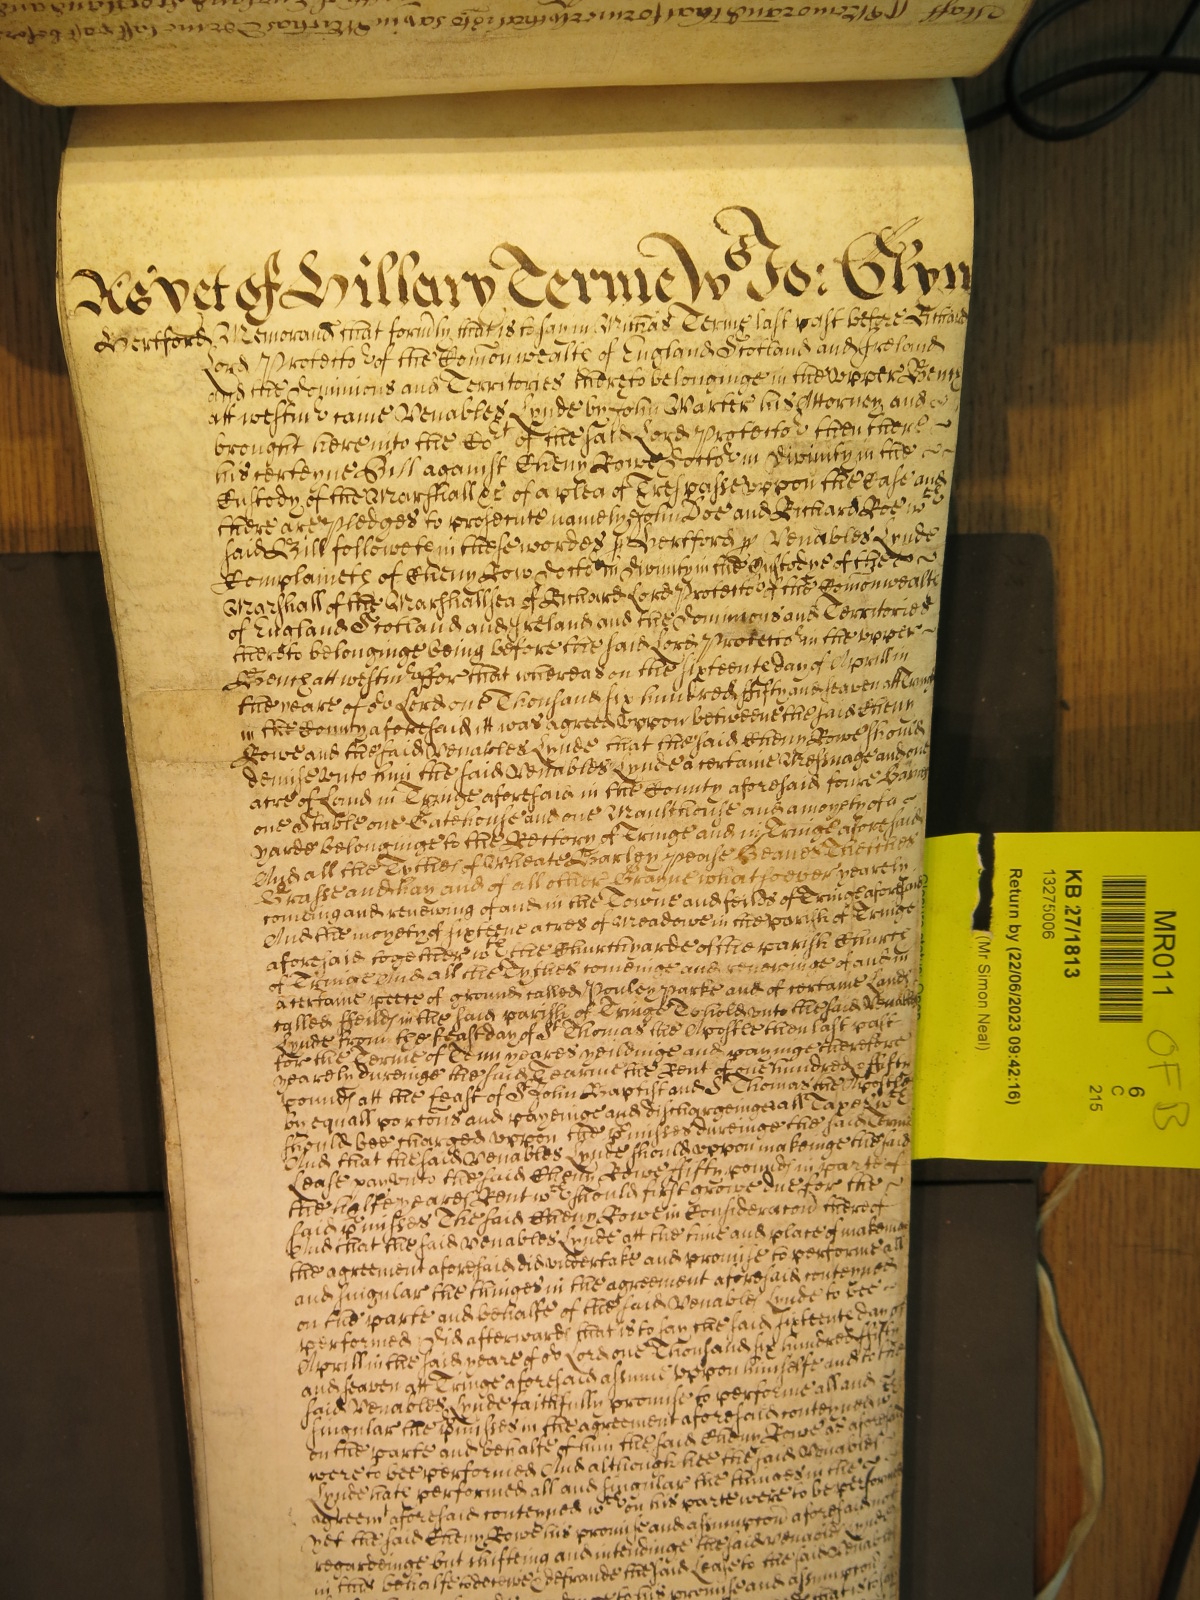 As yet of Hillary Terme Ws Jo: Glyn
Hertford Memorand that form'ly that is to say in Michas Terme last past before Richard
Lord Protector of the Comonwealth of England Scotland and Ireland
and the Dominions and Territories thereto belonginge in the upper Bench
att westmr came Venables Lynde by John Marter his Attorney and
brought here into the Cort of the said Lord Protector then there
his certeyne Bill against Cheny Rowe Doctor in Divinity in the
Custody of the Marshall &c of a plea of Trespasse uppon the Case and
there are Pledges to prosecute namely John Doe and Richard Roe wch
said Bill followeth in these wordes ss Hertford ss Venables Lynde
Complaineth of Cheny Row Doctor in Divinity in the Custodye of the
Marshall of the Marshallsea of Richard Lord Protector of the Comonwealth
of England Scotland and Ireland and the Dominions and Territories
thereto belonginge being before the said Lord Protector in the upper
Bench att westmr ffor that whereas on the sixteenth day of Aprill in
the yeare of or Lord one Thousand six hundred ffifty and seaven att Tringe
in the County aforesaid itt was agreed uppon betweene the said Cheny
Rowe and the said Venables Lynde that the said Cheny Rowe should
demise unto him the said Venables Lynde a certaine Messuage and one
acre of Land in Tringe aforesaid in the County aforesaid foure Barnes
one Stable one Gatehouse and one Maulthouse and a moyety of a
yarde belonginge to the Rectory of Tringe and in Tringe aforesaid
And all the Tythes of Wheate Barley Pease Beanes Thetches
Grasse and hay and of all other Grayne whatsoever yearely
comeing and renewing of and in the Towne and feilds of Tringe aforesaid
And the moyety of sixteene acres of Meadowe in the parish of Tringe
aforesaid together wth the Churchyarde of the parish Church
of Tringe And all the Tythes comeinge and renewinge of and in
a certaine peece of ground called Pouley Parke and of certaine Lands
called ffeilds in the said parish of Tringe To hold unto the said Venables
Lynde from the feast day of St Thomas the Apostle then last past
for the Terme of Tenn yeares yeildinge and payinge therefore
yearely dureinge the said Tearme the Rent of one hundred & ffifty
pounds att the feast of St John Baptist and St Thomas the Apostle
by equall portons and payeinge and dischargeinge all Taxes wch
should bee charged uppon the p'misses dureinge the said Terme
And that the said Venables Lynde should uppon makeinge the said
Lease pay unto the said Cheny Rowe ffifty pounds in parte of
the halfe yeares Rent wch should first growe due for the
said p'misses The said Cheny Rowe in Consideraton thereof
And that the said Venables Lynde att the time and place of makeing
the agreement aforesaid did undertake and promise to performe all
and singular the thinges in the agreement aforesaid conteyned
on the parte and behalfe of the said Venables Lynde to bee
performed Did afterwards that is to say the said sixteenth day of
Aprill in the said yeare of or Lord one Thousand six hundred ffifty
and seaven att Tringe aforesaid assume uppon himselfe and to the
said Venables Lynde faithfully promise to performe all and
singular the p'misses in the agreement aforesaid conteyned wch
on the parte and behalfe of him the said Cheny Rowe as aforesaid
were to bee performed And although hee the said Venables
Lynde hath performed all and singular the thinges in the
agreemt aforesaid conteyned wch on his parte were to be performed
yet the said Cheny Rowe his promise and assumpton aforesaid not
regardeinge but shifting and intendinge the said Venables Lynde
in this behalfe to deceive & defraude the said Lease to the said Venables
to his promise and assumpton
MR011
6
C
215
OFB
KB 27/1813
13275006
Return by (22/06/2023 09:42:16)
(Mr Simon Neal)